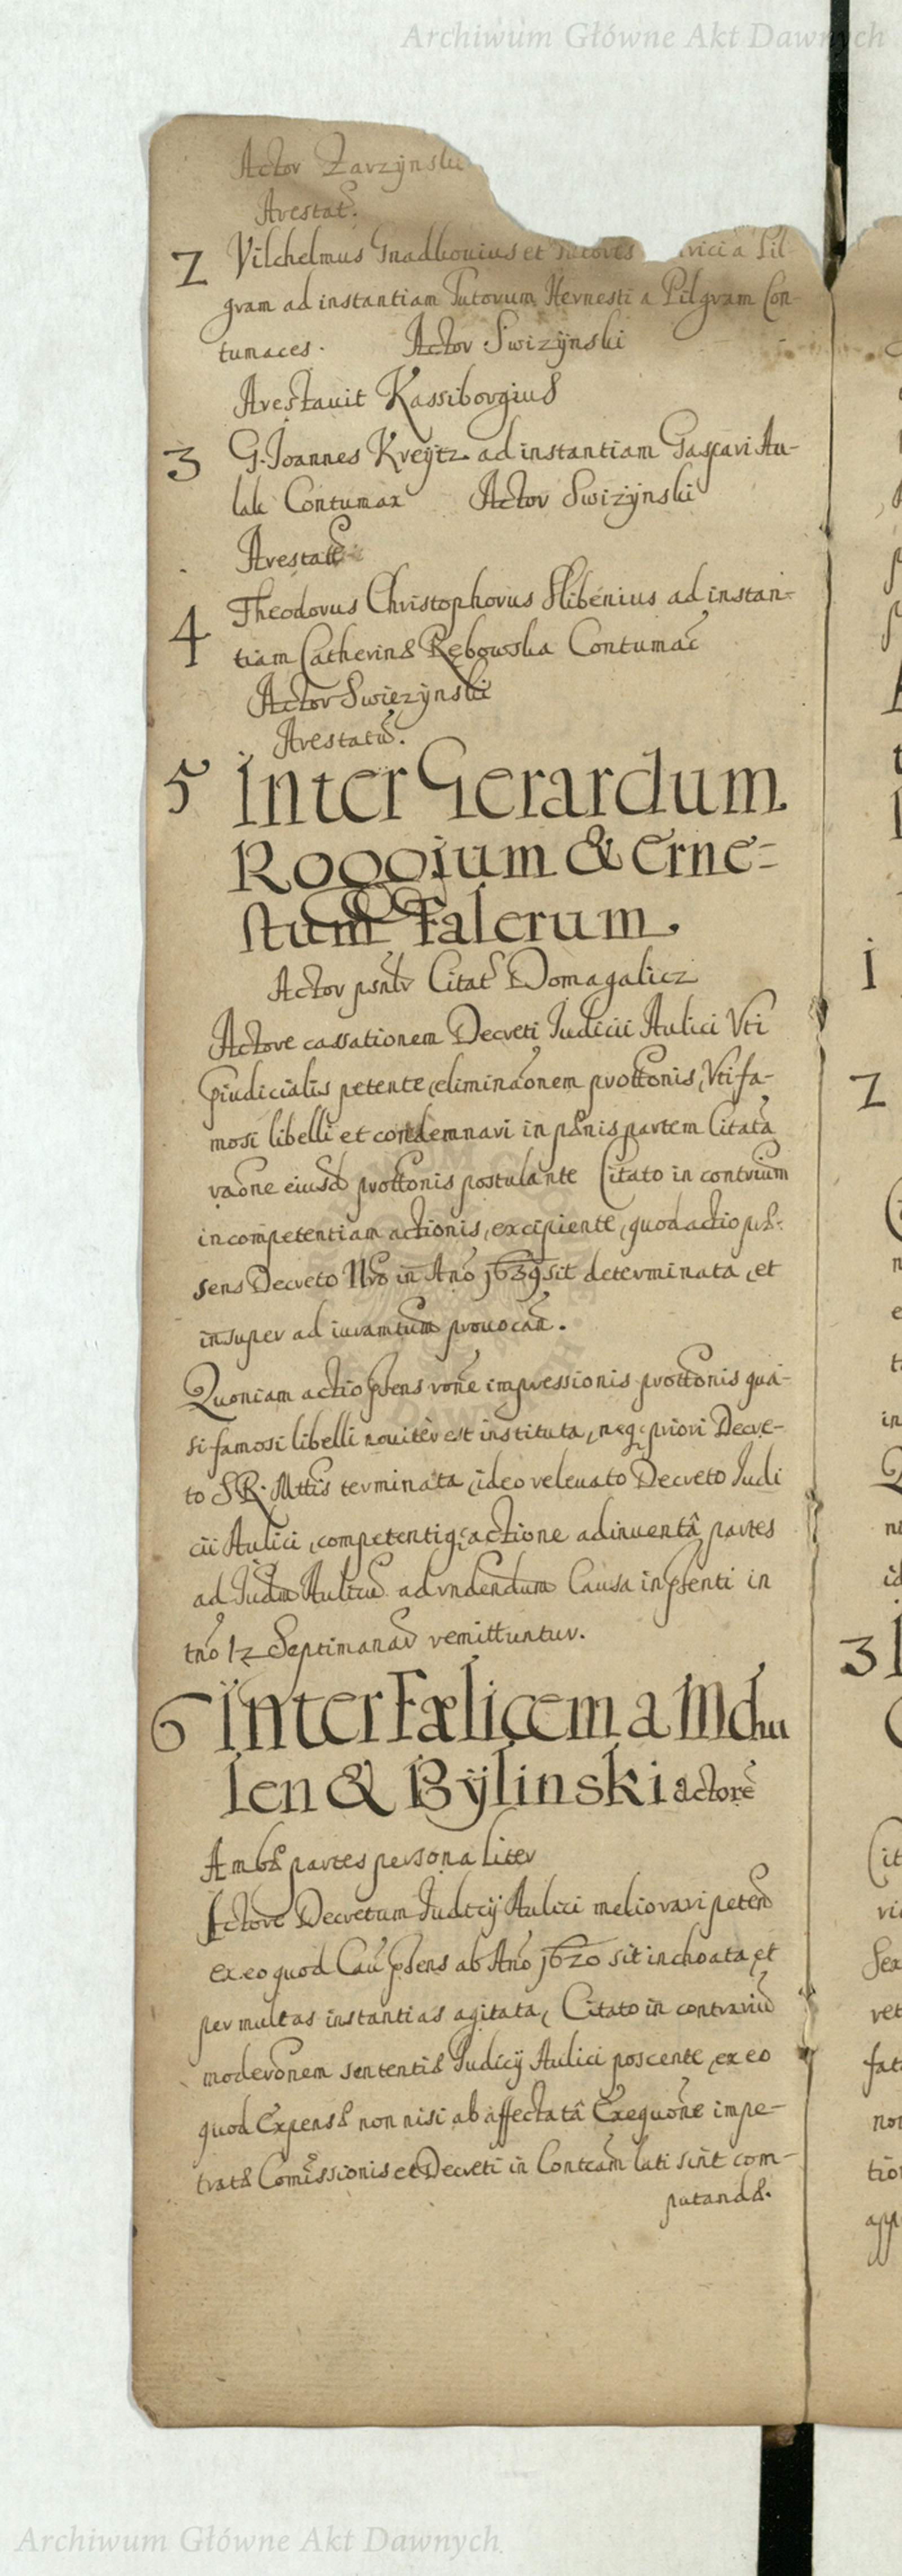 Archiwum Główne Akt Dawnych
Actor Zarzÿnski
Arestat.
2 Vilchelmus Gnadkouius et Tutores rici a Pil-
gram ad instantiam Tutorum Hernesti a Pilgram Con-
tumaces. Actor Swizÿnski
Arestauit Kassiborgius
3 G. Joannes Kreÿtz ad instantiam Gaspari Au-
lak Contumax Actor Swizÿnski
Arestat
4 Theodorus Christophorus Slibenius ad instan-
tiam Catherinæ Rębowska Contumac
Actor Swięzÿnski
Arestatu.
5 Inter Gerardum
Roggium & Erne=
stum Falerum.
Actor psnlr Citat Domagalicz
Actore cassationem Decreti Judicii Aulici Vti
Piudicialis petente, eliminaonem prottonis, Vti fa-
mosi libelli et condemnari in pænis partem Citata
raone eiusd prottonis postulante Citato in contrium
incompetentiam actionis, excipiente, quod actio præ-
sens Decreto Nro in Ano 1639 sit determinata, et
insuper ad iuramtum prouocan.
Quoniam actio psens rone impressionis prottonis qua-
si famosi libelli nouiter est instituta, neq priori Decre-
to S R. Mttis terminata, ideo releuato Decreto Judi
cii Aulici, competentiq actione adinuentâ partes
ad Judm Aulicu ad vndendum Causa in psenti in
tno 12 Septimanar remittuntur.
6 Inter Fælicem a Mdhu
len & Bÿlinski actore
Ambæ partes personaliter
Actore Decretum Judicÿ Aulici meliorari peten
ex eo quod Cau psens ab Ano 1620 sit inchoata et
per multas instantias agitata, Citato in contrariu
moderonem sententiæ Judicÿ Aulici poscente, ex eo
quod Expensæ non nisi ab affectatâ Exequone impe-
tratæ Comissionis et Decreti in Contcam lati sint com-
putandæ.
Archiwum Główne Akt Dawnych